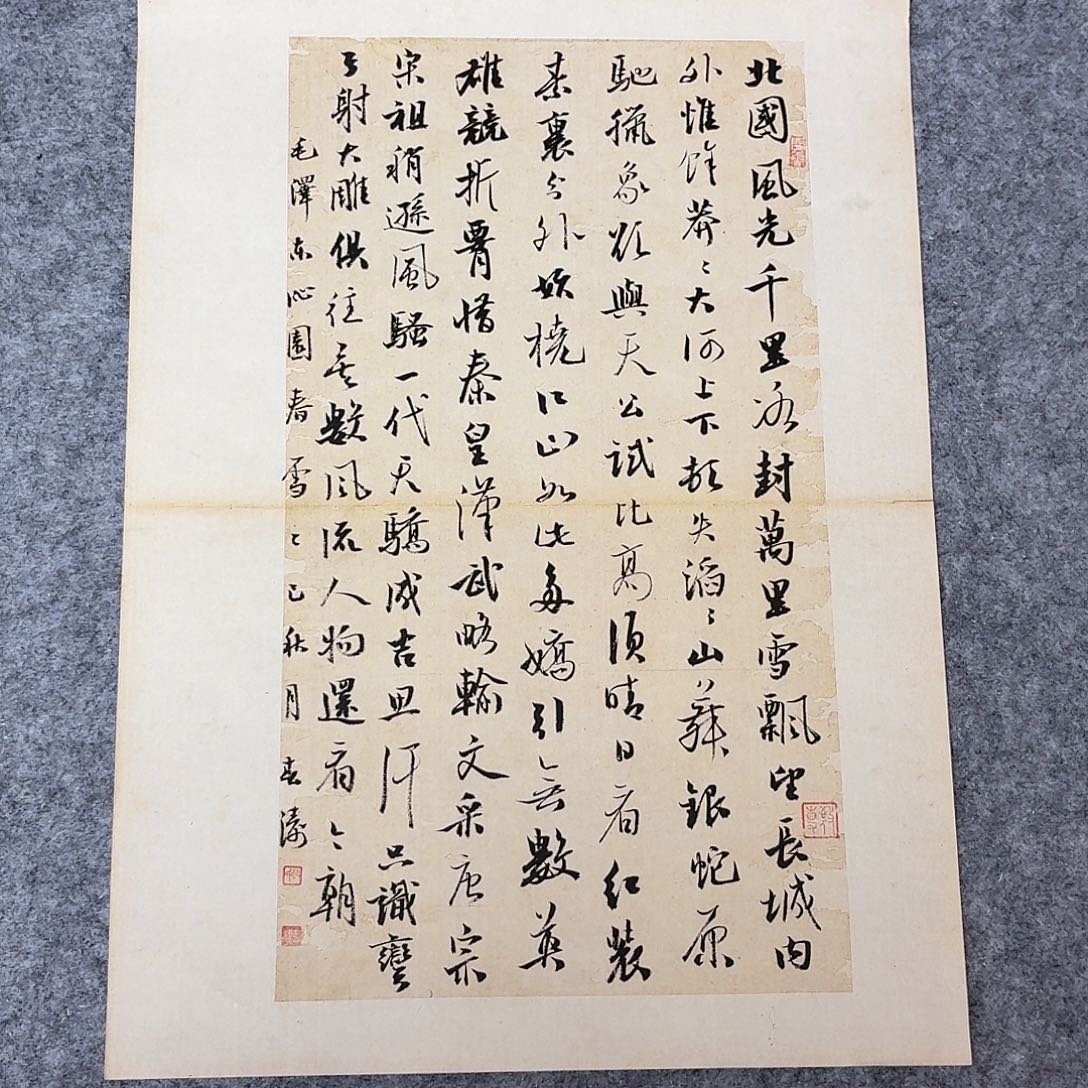 北國風光千里冰封萬里雪飄望長城内
外惟餘莽〻大河上下頓失滔〻山舞銀蛇原
馳臘象欲與天公試比高須晴日看紅裝
素裹分外妖嬈江山如此多嬌引無數英
雄競折腰惜秦皇漢武略輸文采唐宗
宋祖稍遜風騷一代天驕成吉思汗只識彎
弓射大雕俱往矣數風流人物還看今朝
毛澤東沁園春雪乙巳秋月